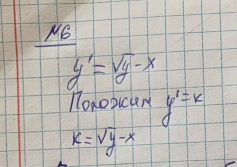 №6
y' = √y - x
Положим y' = k
k = √y - x